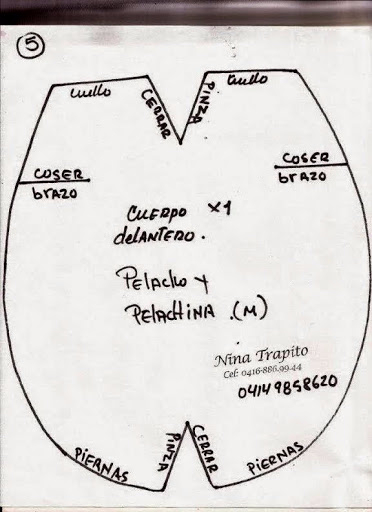 5
cuello
cuello
CERRAR
PINZA
COSER
brazo
COSER
brazo
CUERPO x1
delANTERO.
Pelacho y
PELACHINA .(M)
Nina Trapito
Cel: 0416-886.99.44
04149858620
PIERNAS
PINZA
CERRAR
PIERNAS